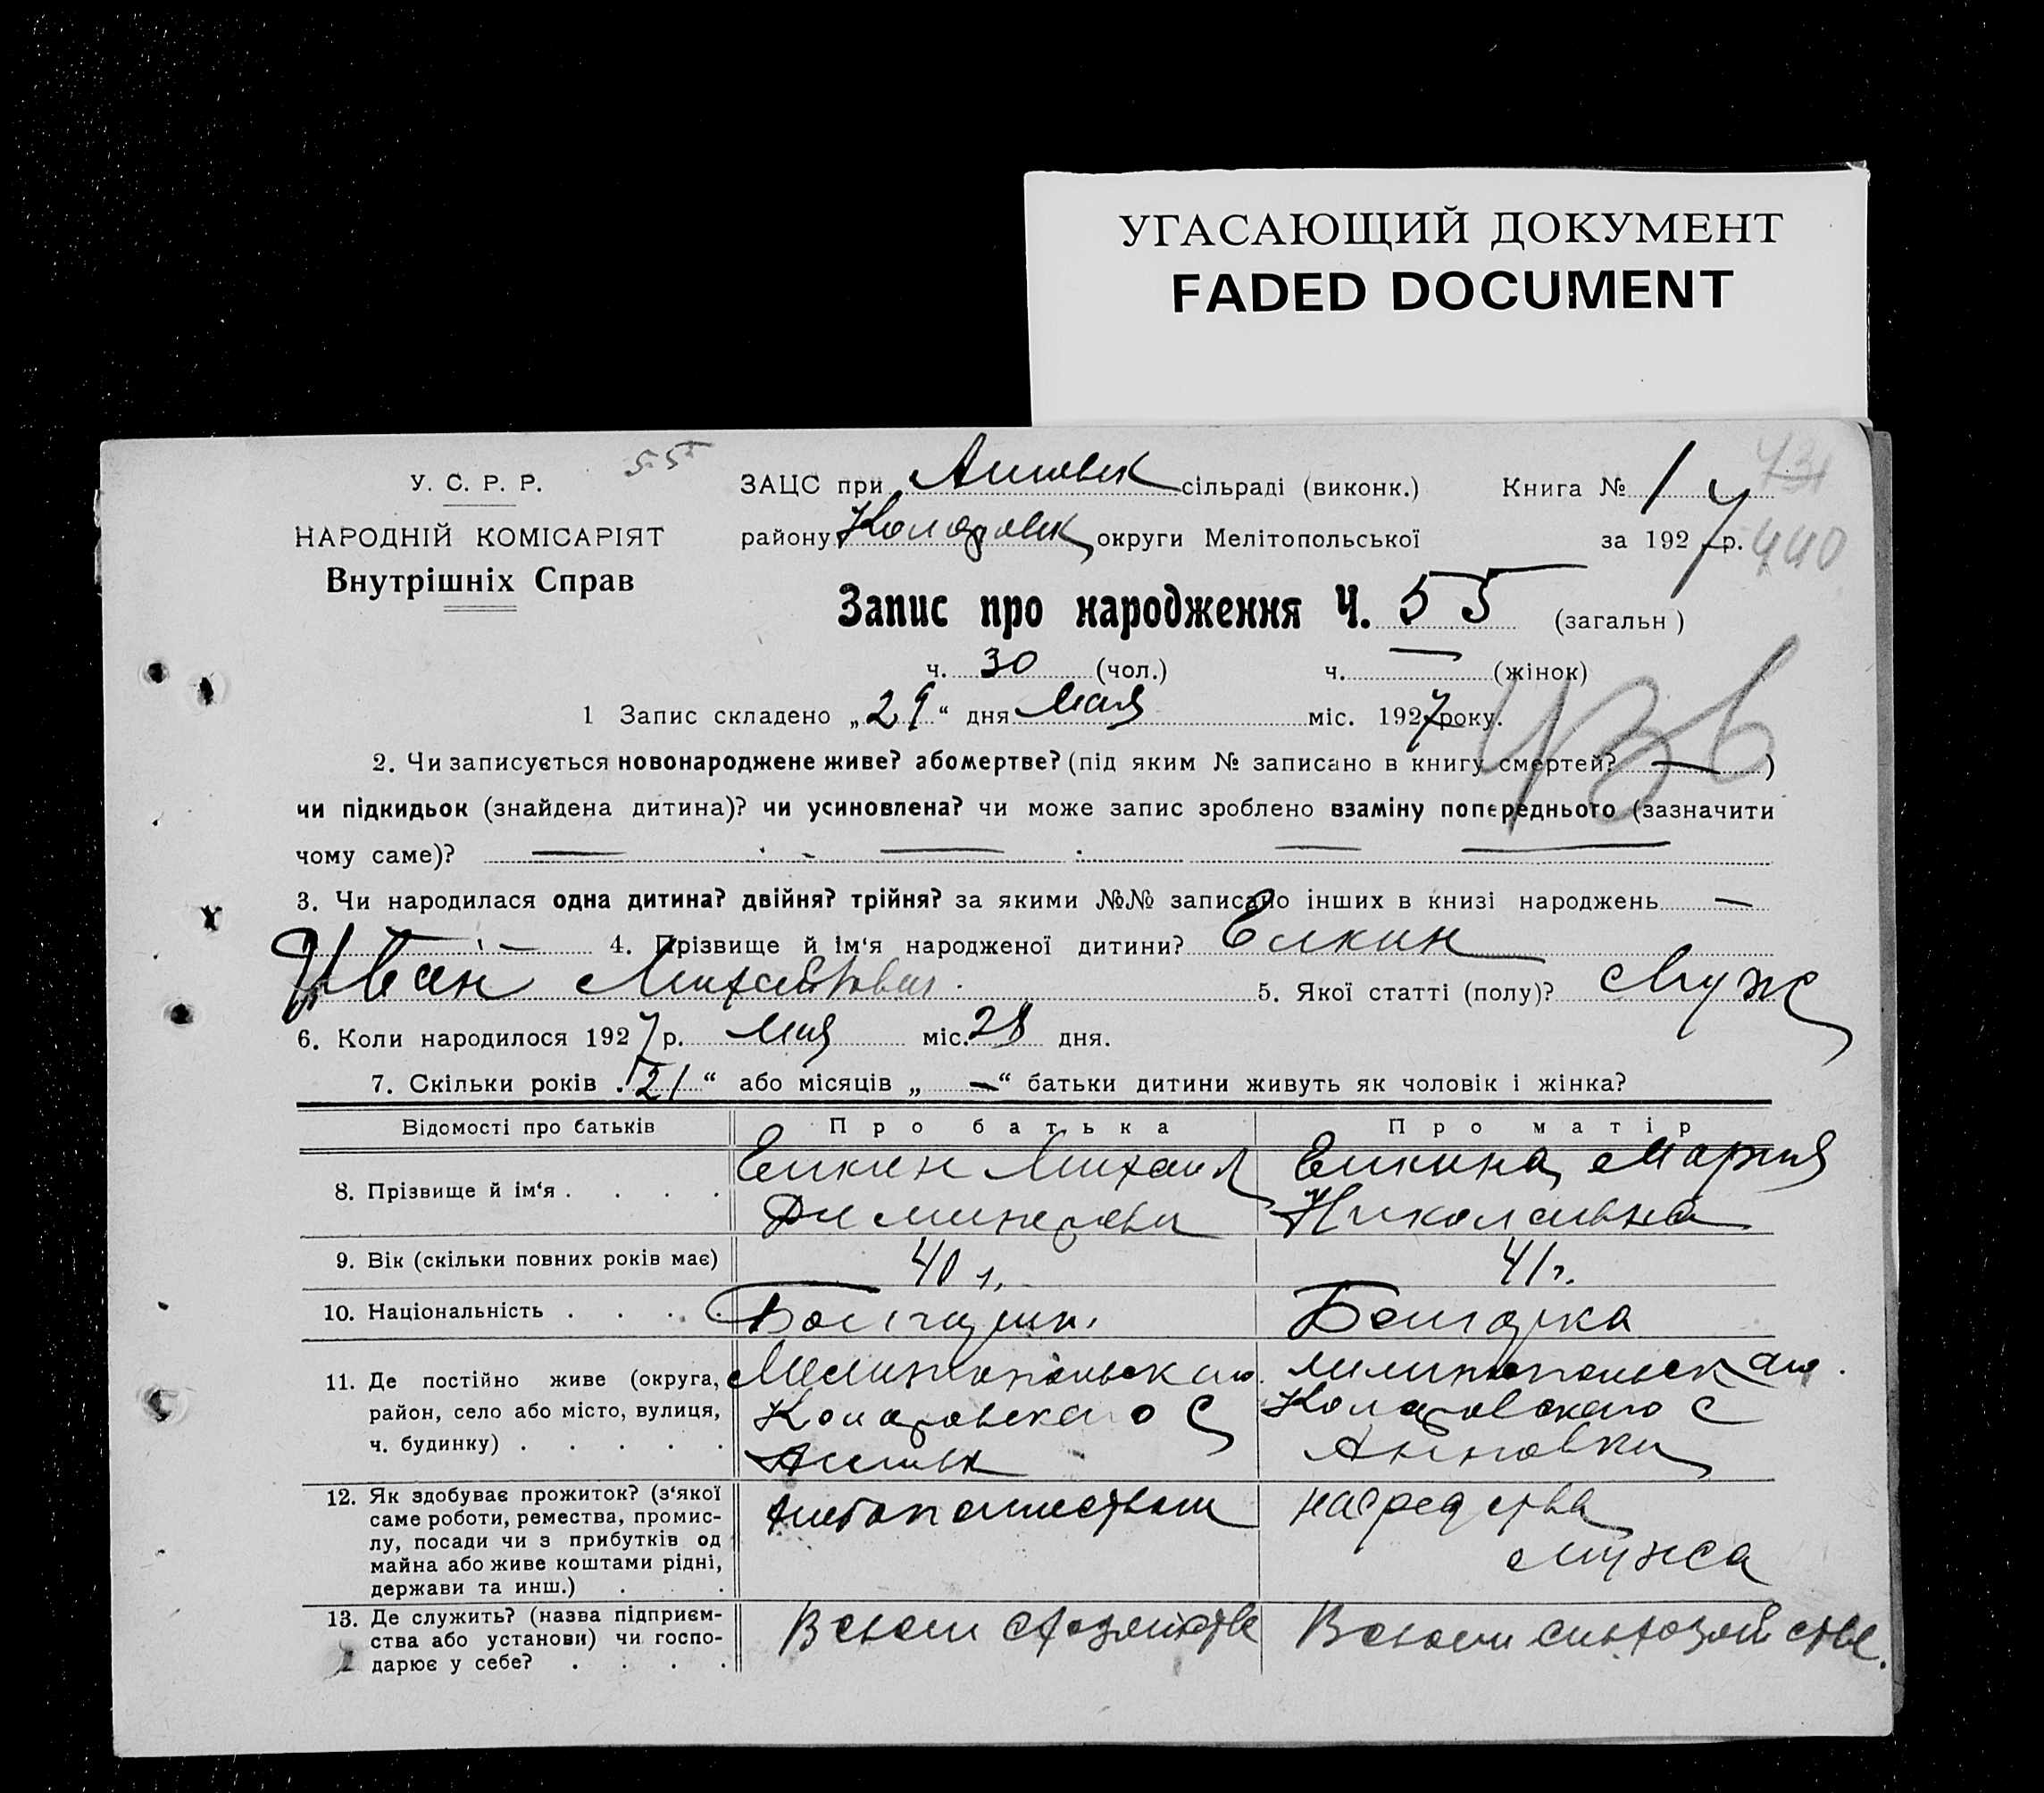 УГАСАЮЩИЙ ДОКУМЕНТ
FADED DOCUMENT
У. С. Р. Р.
НАРОДНІЙ КОМІСАРІЯТ
Внутрішніх Справ
55
ЗАЦС при сільраді (виконк.) Книга № 1
району округи Мелітопольської за 1927 р.
440
Запис про народження Ч. 55 (загальн)
ч. 30 (чол.) ч. — (жінок)
1 Запис складено „29“ дня Мая міс. 1927 року.
2. Чи записується новонароджене живе? або мертве? (під яким № записано в книгу смертей? — )
чи підкидьок (знайдена дитина)? чи усиновлена? чи може запис зроблено взаміну попереднього (зазначити
чому саме)? — — — —
3. Чи народилася одна дитина? двійня? трійня? за якими №№ записано інших в книзі народжень —
— 4. Прізвище й ім‘я народженої дитини? Елкин
Иван Михайлович 5. Якої статті (полу)? Муж
6. Коли народилося 1927 р. Мая міс. 28 дня.
7. Скільки років „21“ або місяців „ — “ батьки дитини живуть як чоловік і жінка?
Відомості про батьків Про батька Про матір
8. Прізвище й ім‘я . . . . Елкин Михаил Елкина Мария
Николаевна
9. Вік (скільки повних років має) 40 г. 41 г.
10. Національність . . . . Болгарин. Болгарка
11. Де постійно живе (округа, район, село або місто, вулиця, ч. будинку) . . . . .
Коларовского С Коларовского С
Анновки
12. Як здобуває прожиток? (з‘якої саме роботи, ремества, промислу, посади чи з прибутків од майна або живе коштами рідні, держави та инш.) . . .
хлебопашеством на средства
мужа
13. Де служить? (назва підприємства або установи) чи господарює у себе? . . . .
В своем хозяйстве В своем хозяйстве.